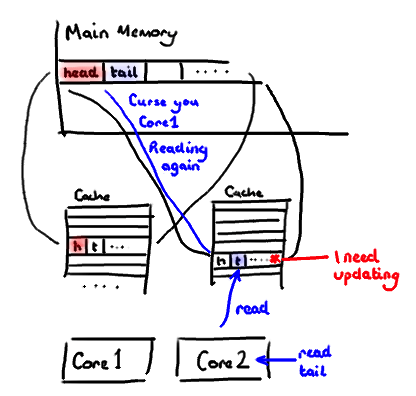 Main Memory
head tail ....
Curse you
Core1
Reading
again
Cache
Cache
h t ...
h t .... *
I need
updating
....
read
Core 1
Core 2
read
tail